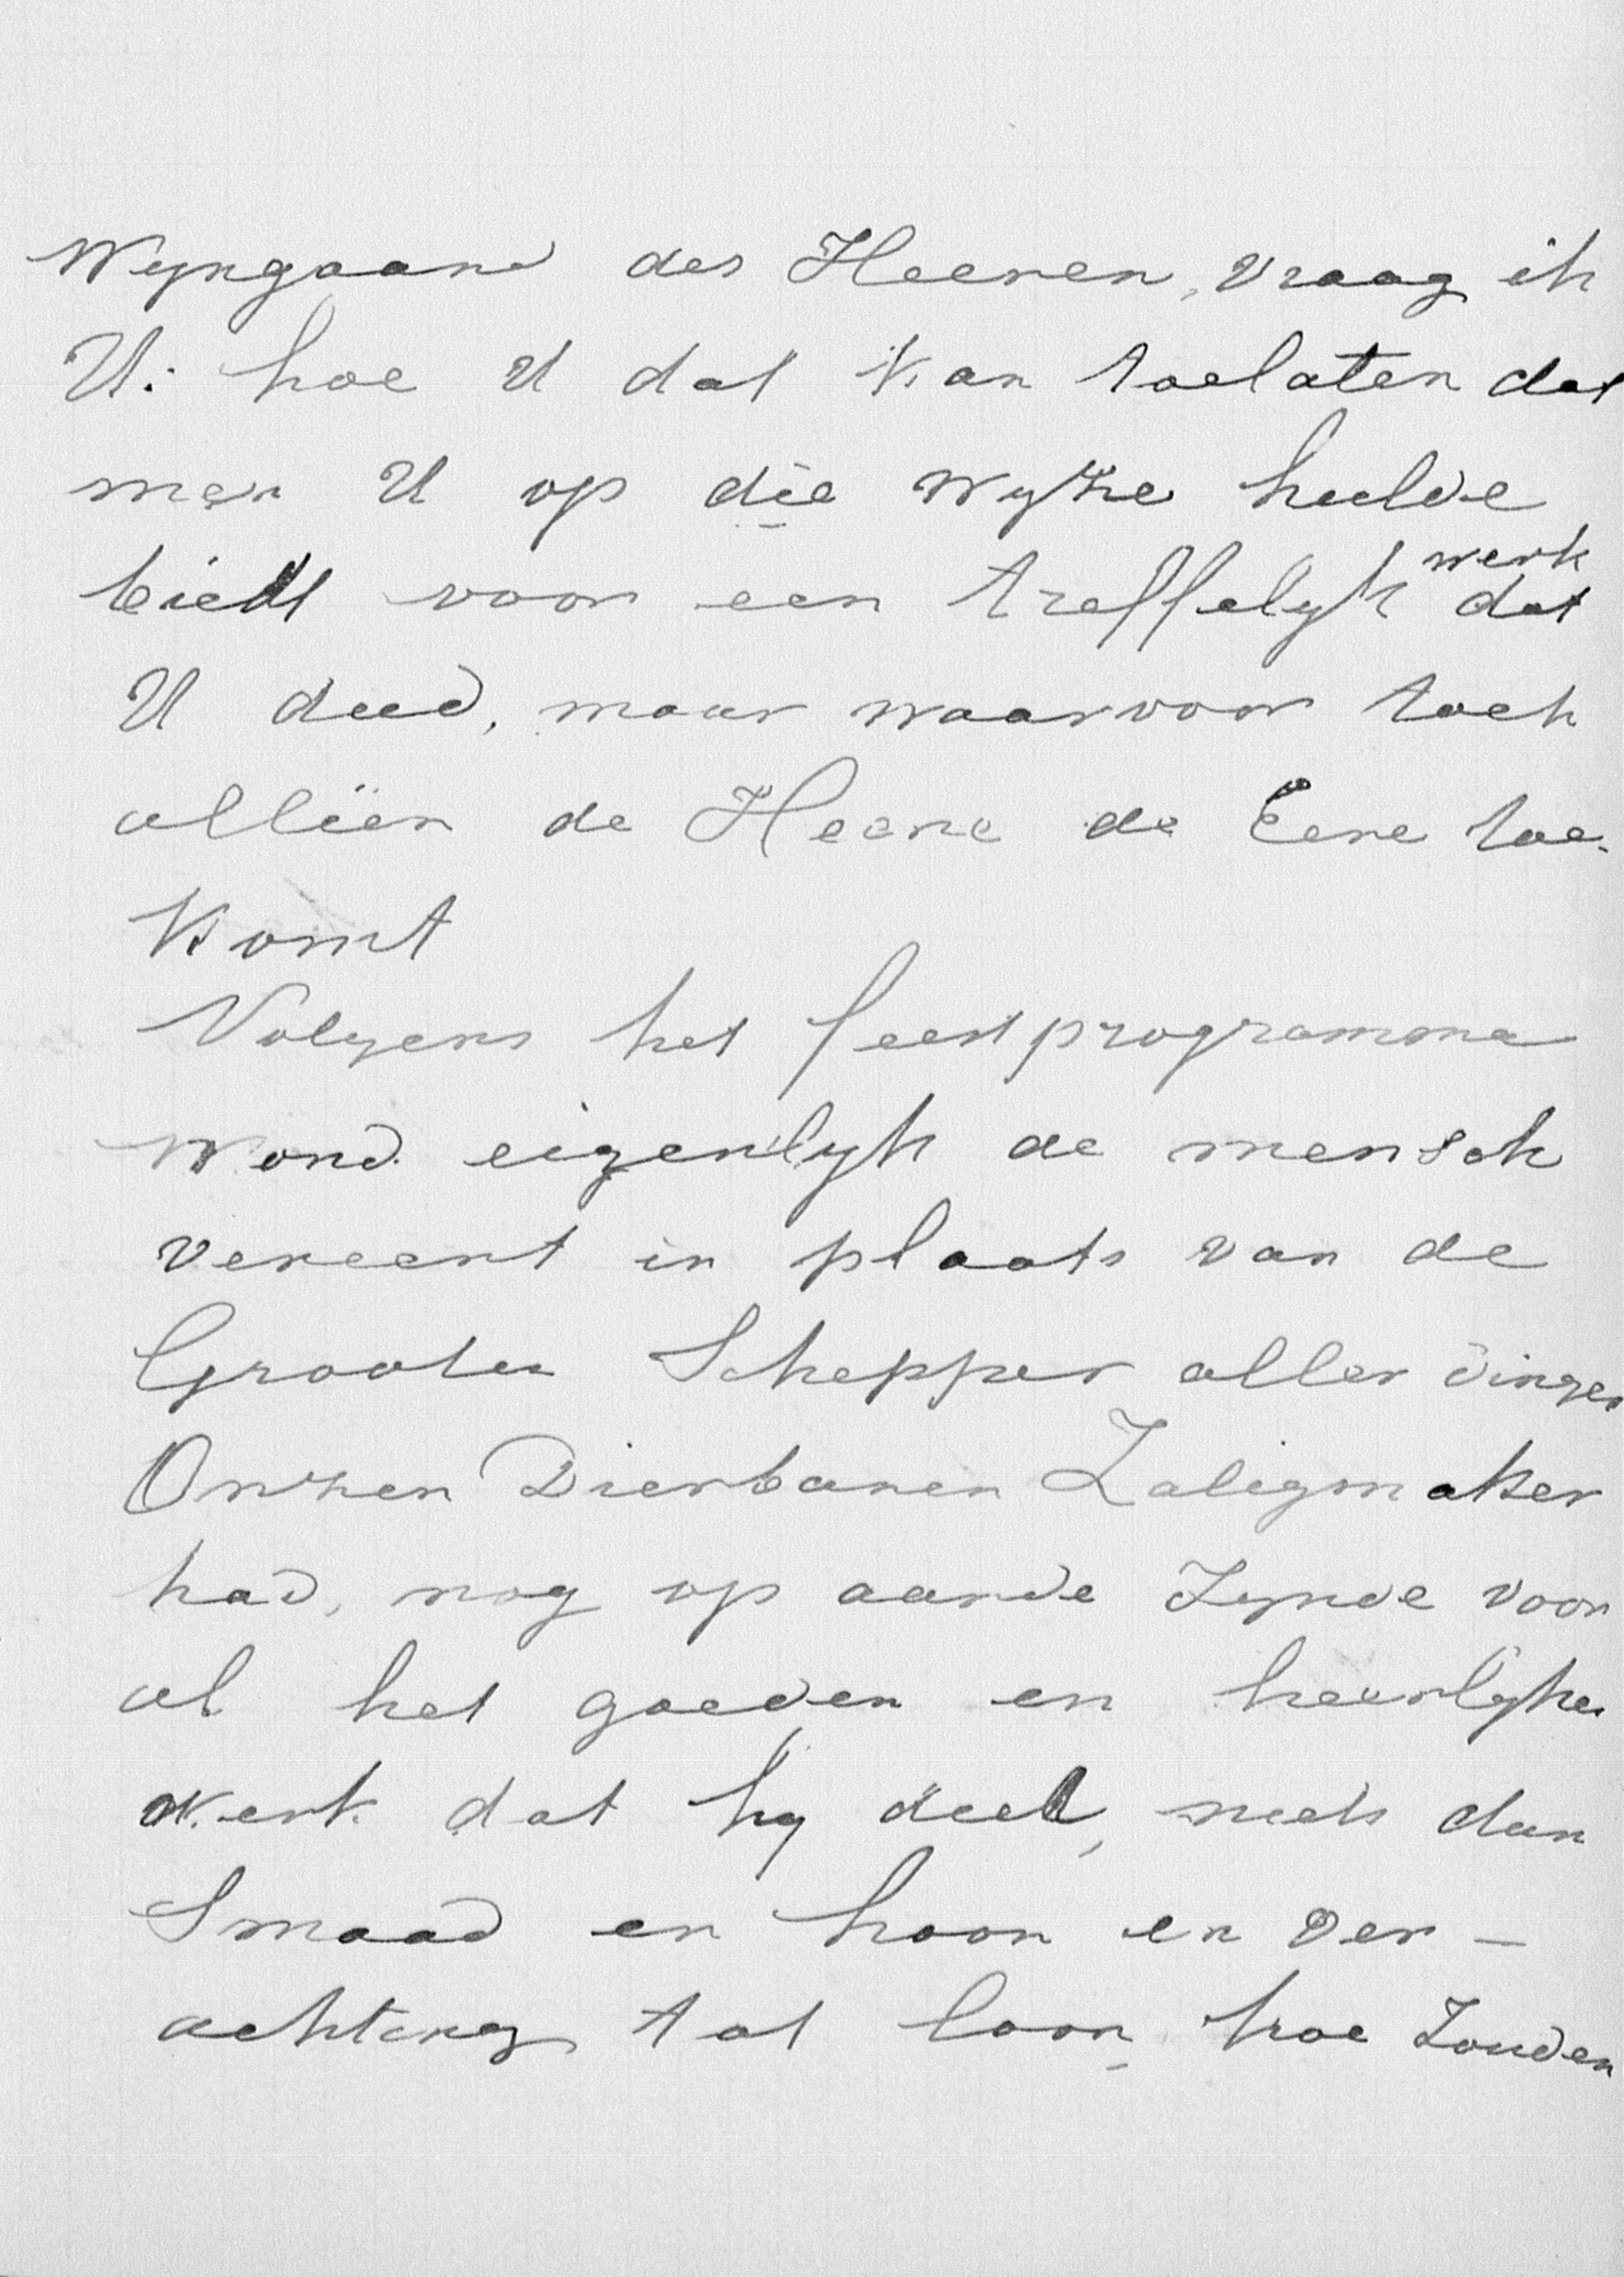 Wyngaard des Heeren, vraag ik
U: hoe U dat kan toelaten dat
men U op die wyze hulde
biedt voor een treffelyk werk dat
U deed, maar waarvoor toch
alléen de Heere de Eere toe-
komt
Volgens het feestprogramma
word eigenlyk de mensch
vereert in plaats van de
Grooten Schepper aller dingen
Onzen Dierbaren Zaligmaker
had, nog op aarde zynde voor
al het goeden en heerlyke
werk dat hy deed, niets dan
Smaad en hoon en ver-
achting tot loon, hoe zouden